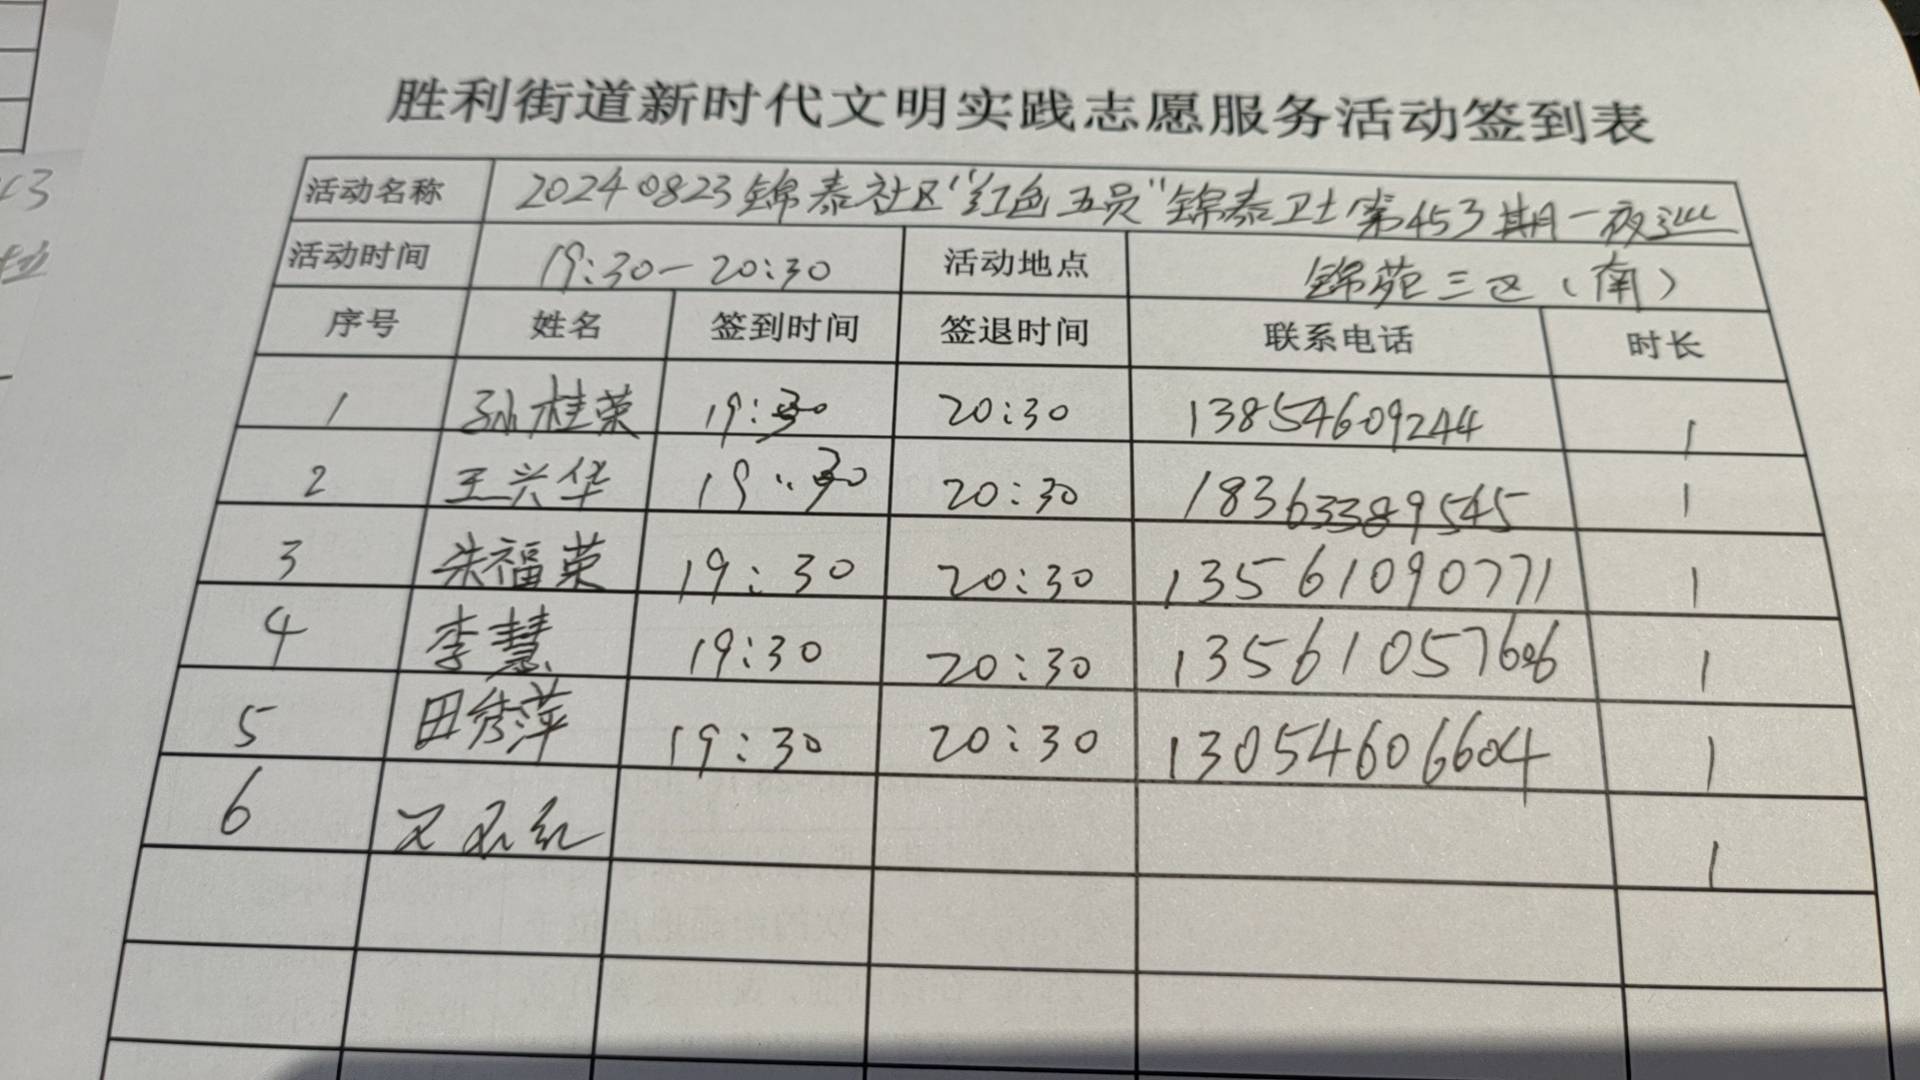 胜利街道新时代文明实践志愿服务活动签到表
活动名称 20240823锦泰社区“红色五员”锦泰卫士第453期一夜巡
活动时间 19:30-20:30 活动地点 锦苑三区（南）
序号 姓名 签到时间 签退时间 联系电话 时长
1 孙桂荣 19:30 20:30 13854609244 1
2 王兴华 19:30 20:30 18363389545 1
3 朱福荣 19:30 20:30 13561090771 1
4 李慧 19:30 20:30 13561057606 1
5 田秀萍 19:30 20:30 13054606604 1
6 1